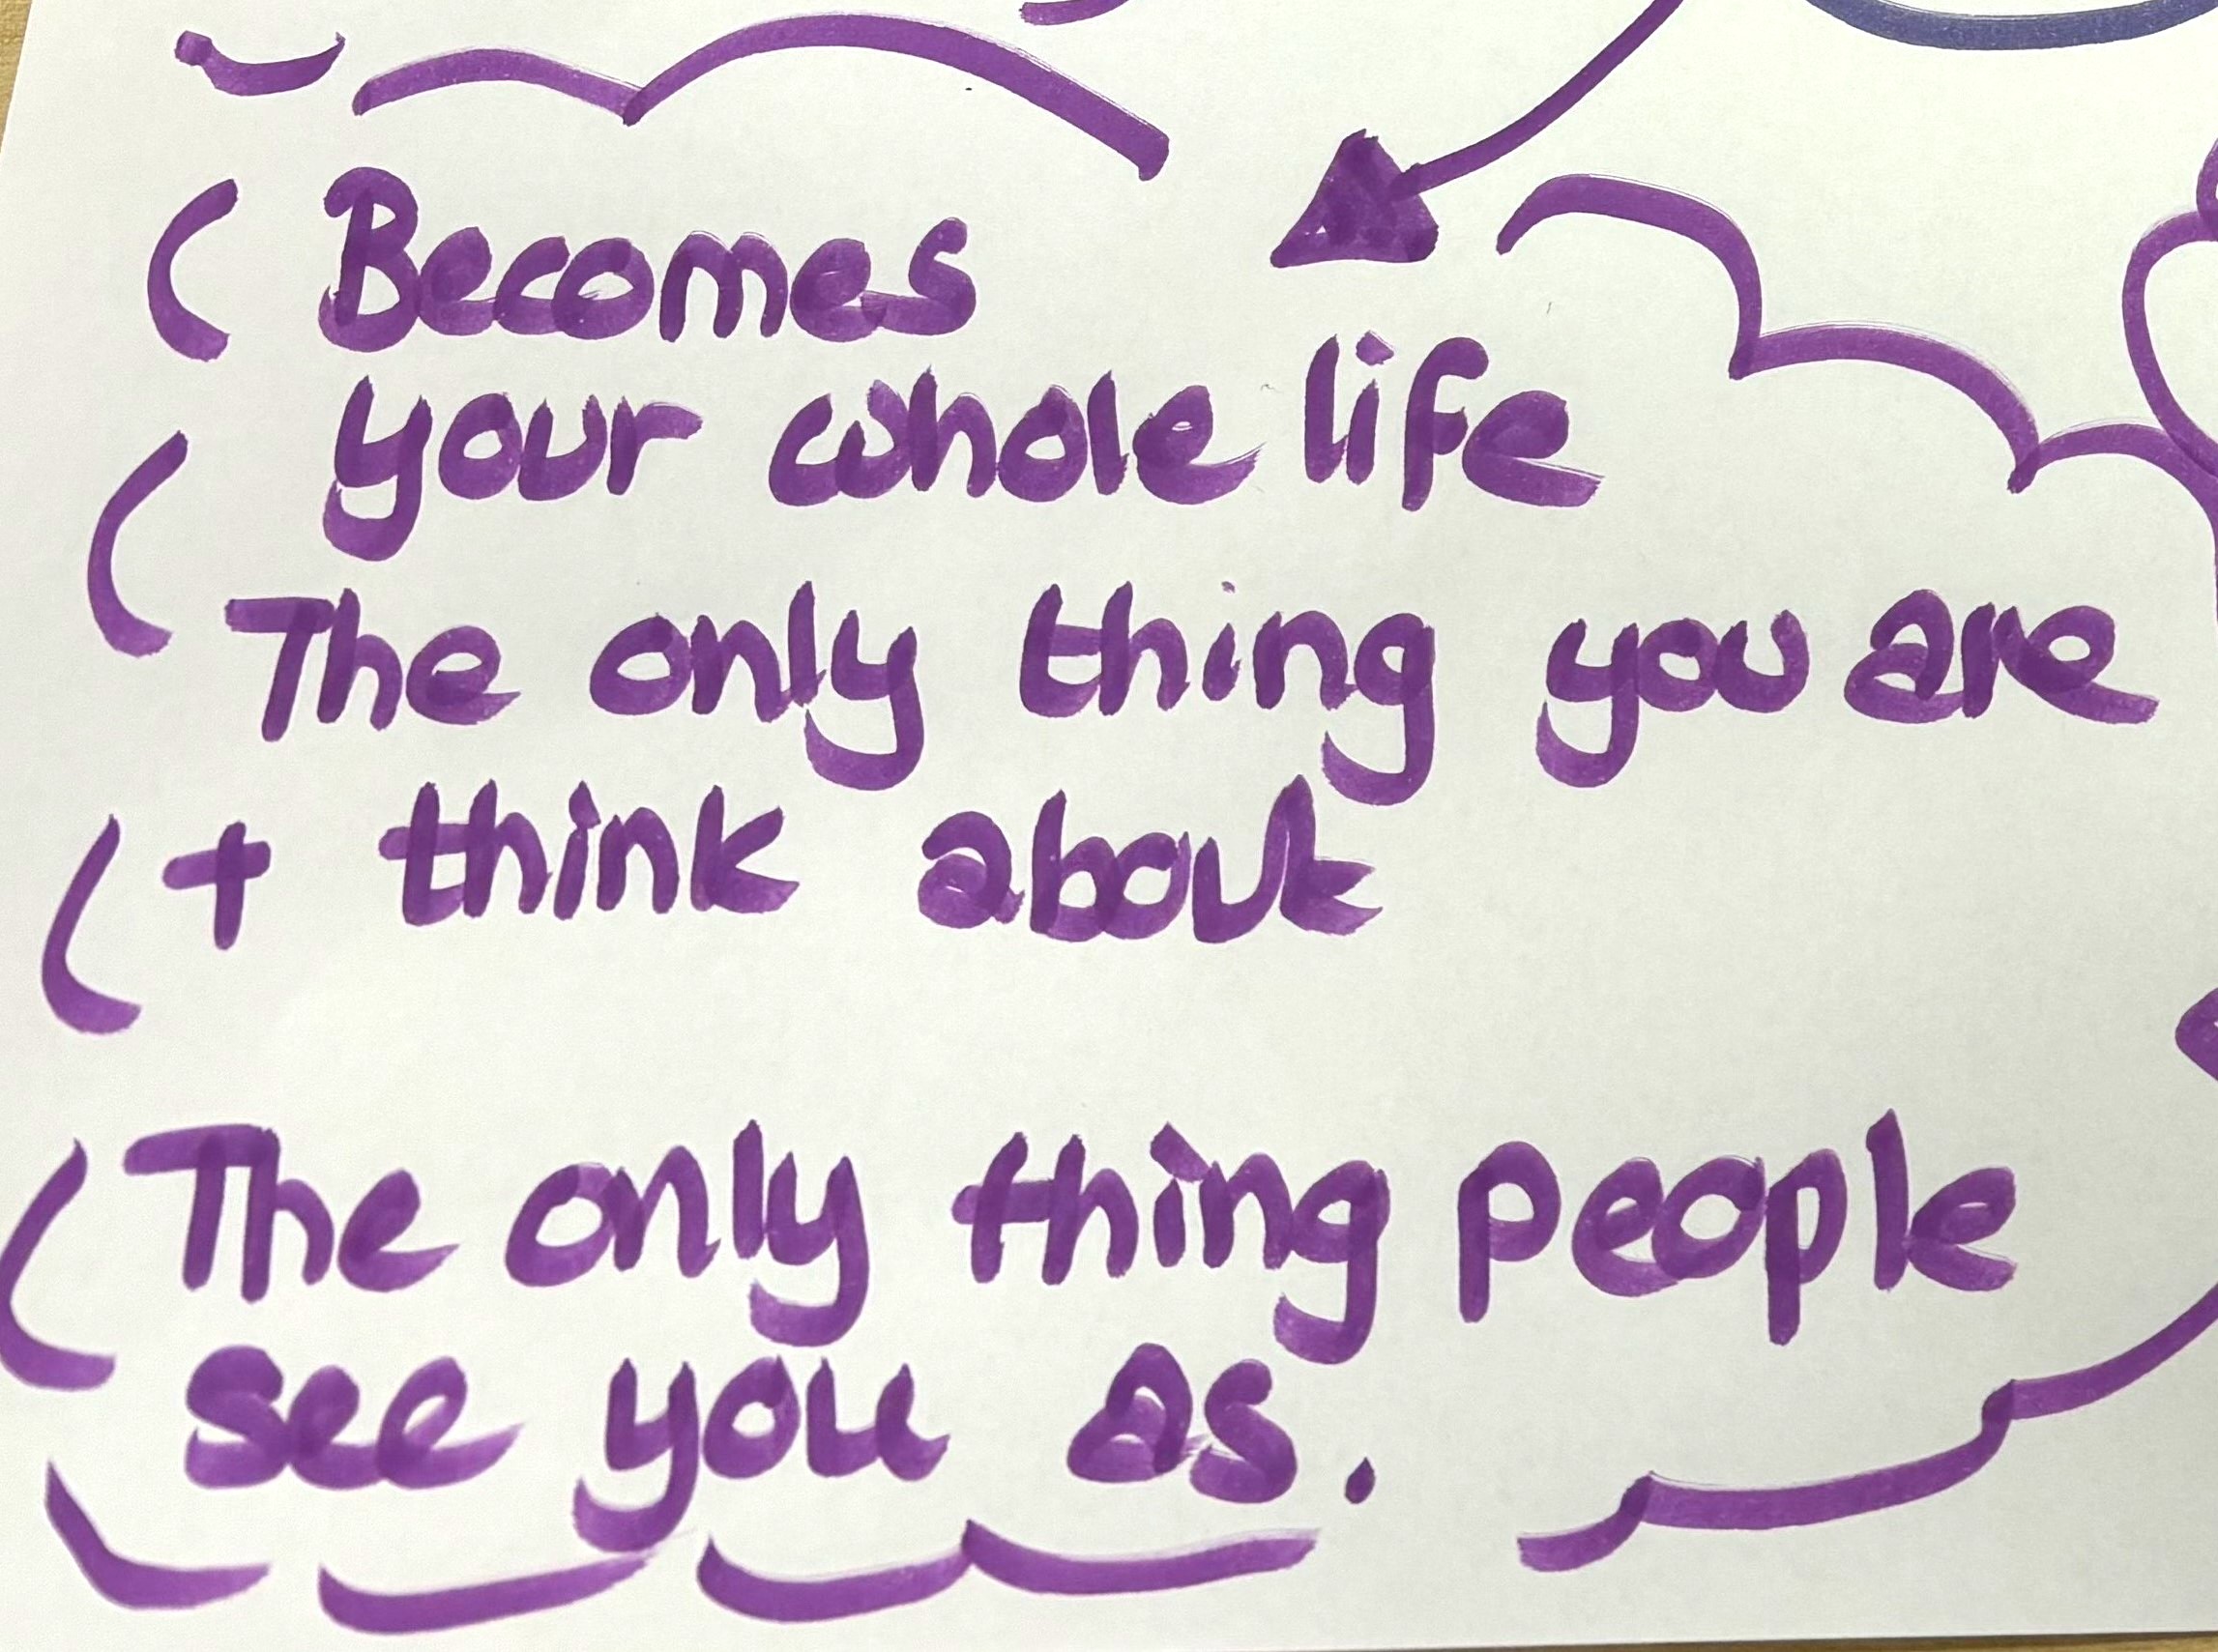 Becomes
your whole life
The only thing you are
+ think about
The only thing people
see you as.